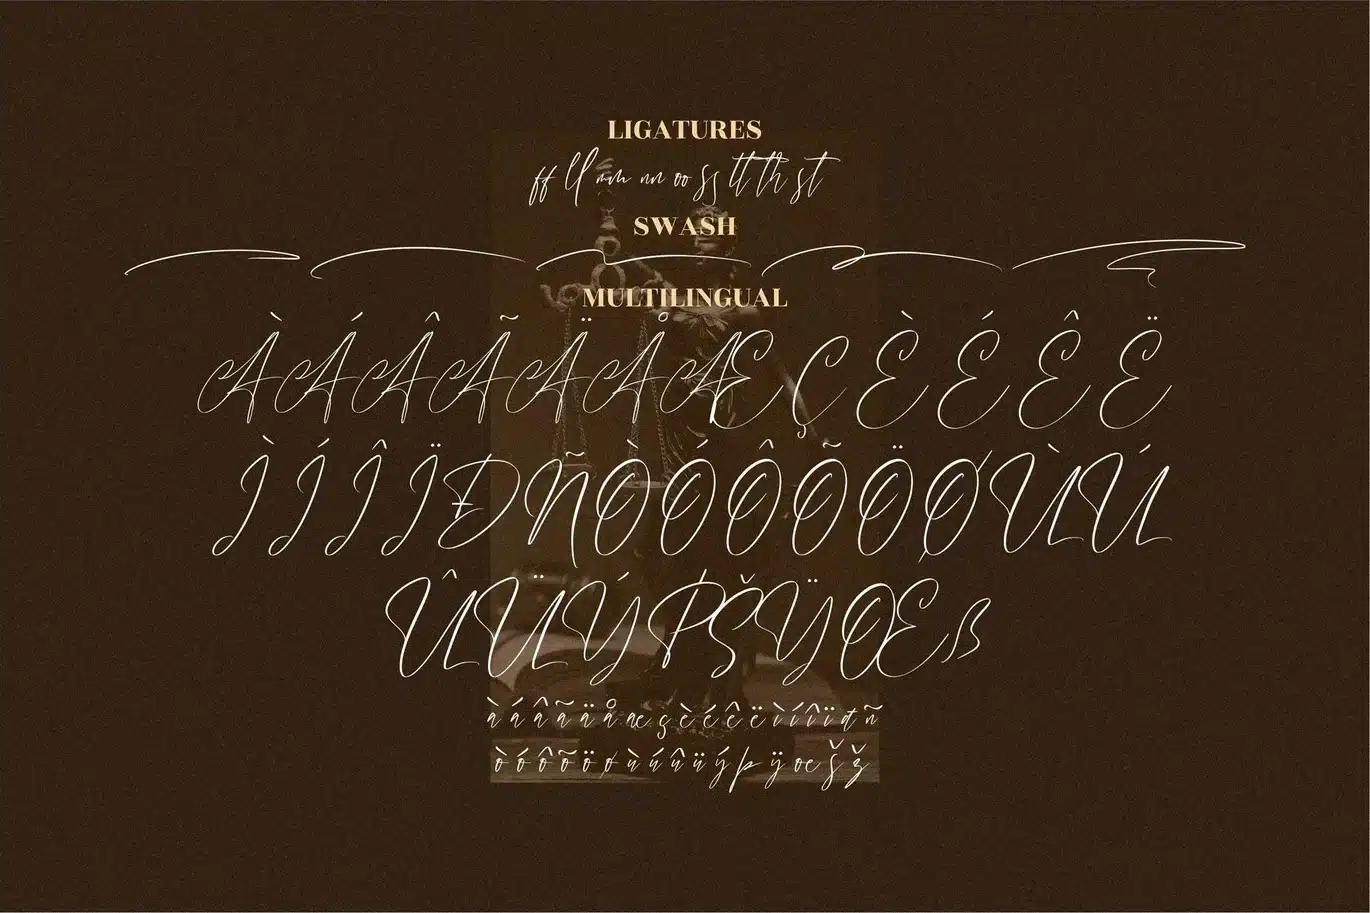 LIGATURES
ff ll mm nn oo ss tt th st
SWASH
MULTILINGUAL
À Á Â Ã Ä Å Æ Ç È É Ê Ë
Ì Í Î Ï Ð Ñ Ò Ó Ô Õ Ö Ø Ù Ú
Û Ü Ý Þ Š Ÿ Œ ß
à á â ã ä å æ ç è é ê ë ì í î ï đ ñ
ò ó ô õ ö ø ù ú û ü ý þ ÿ œ š ž